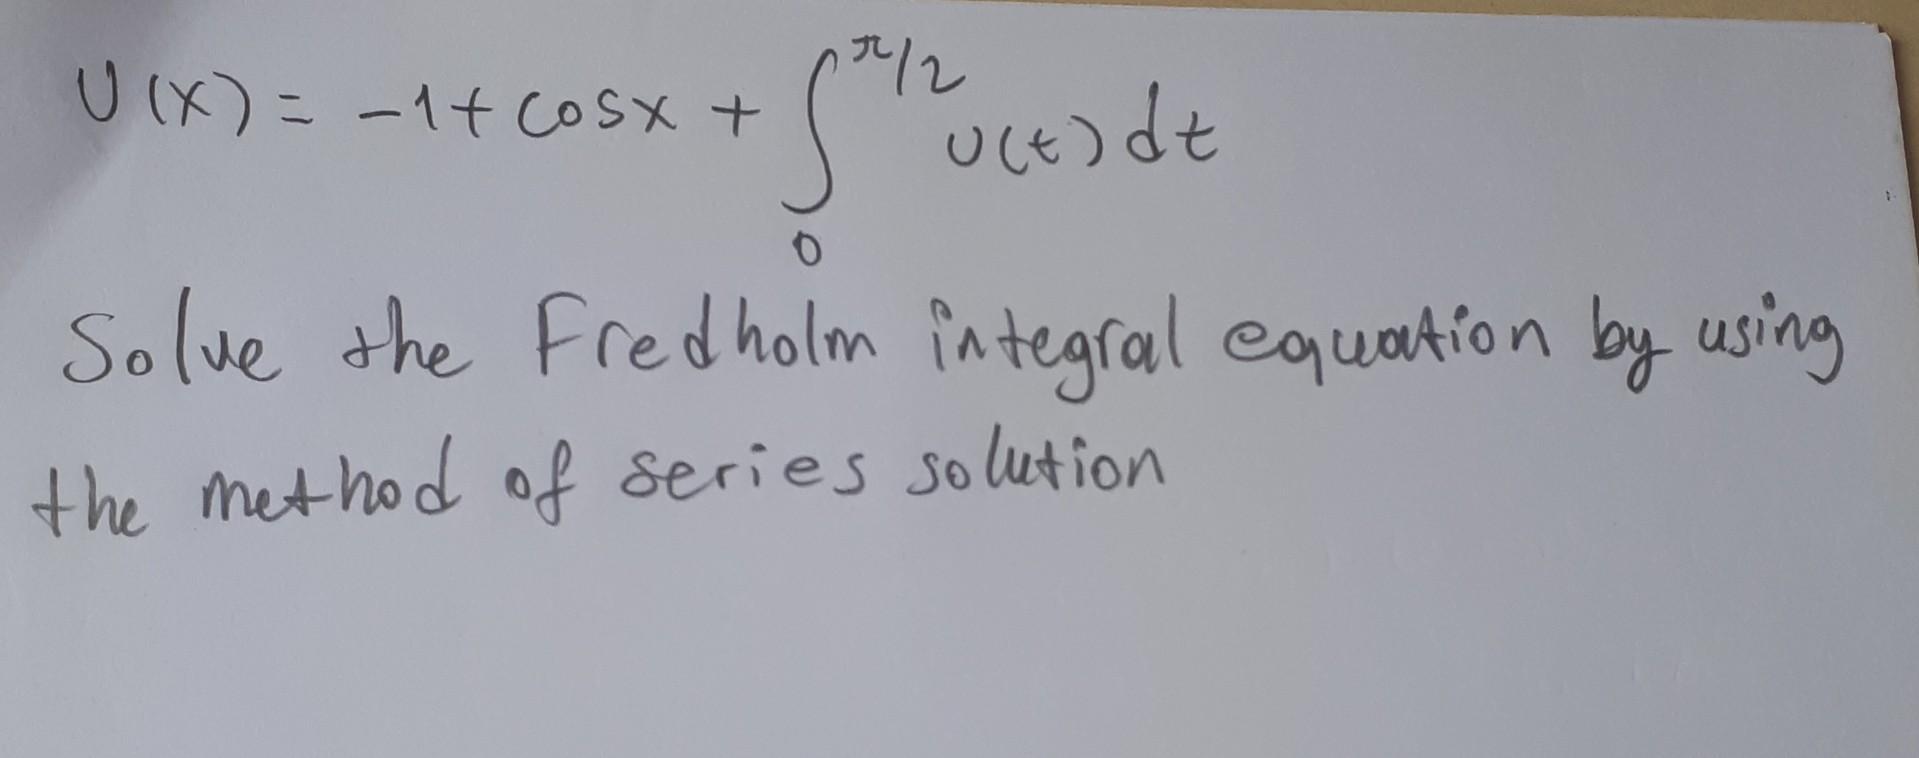 U(x) = -1 + cosx + ∫₀^π/2 u(t) dt
Solve the Fredholm integral equation by using
the method of series solution